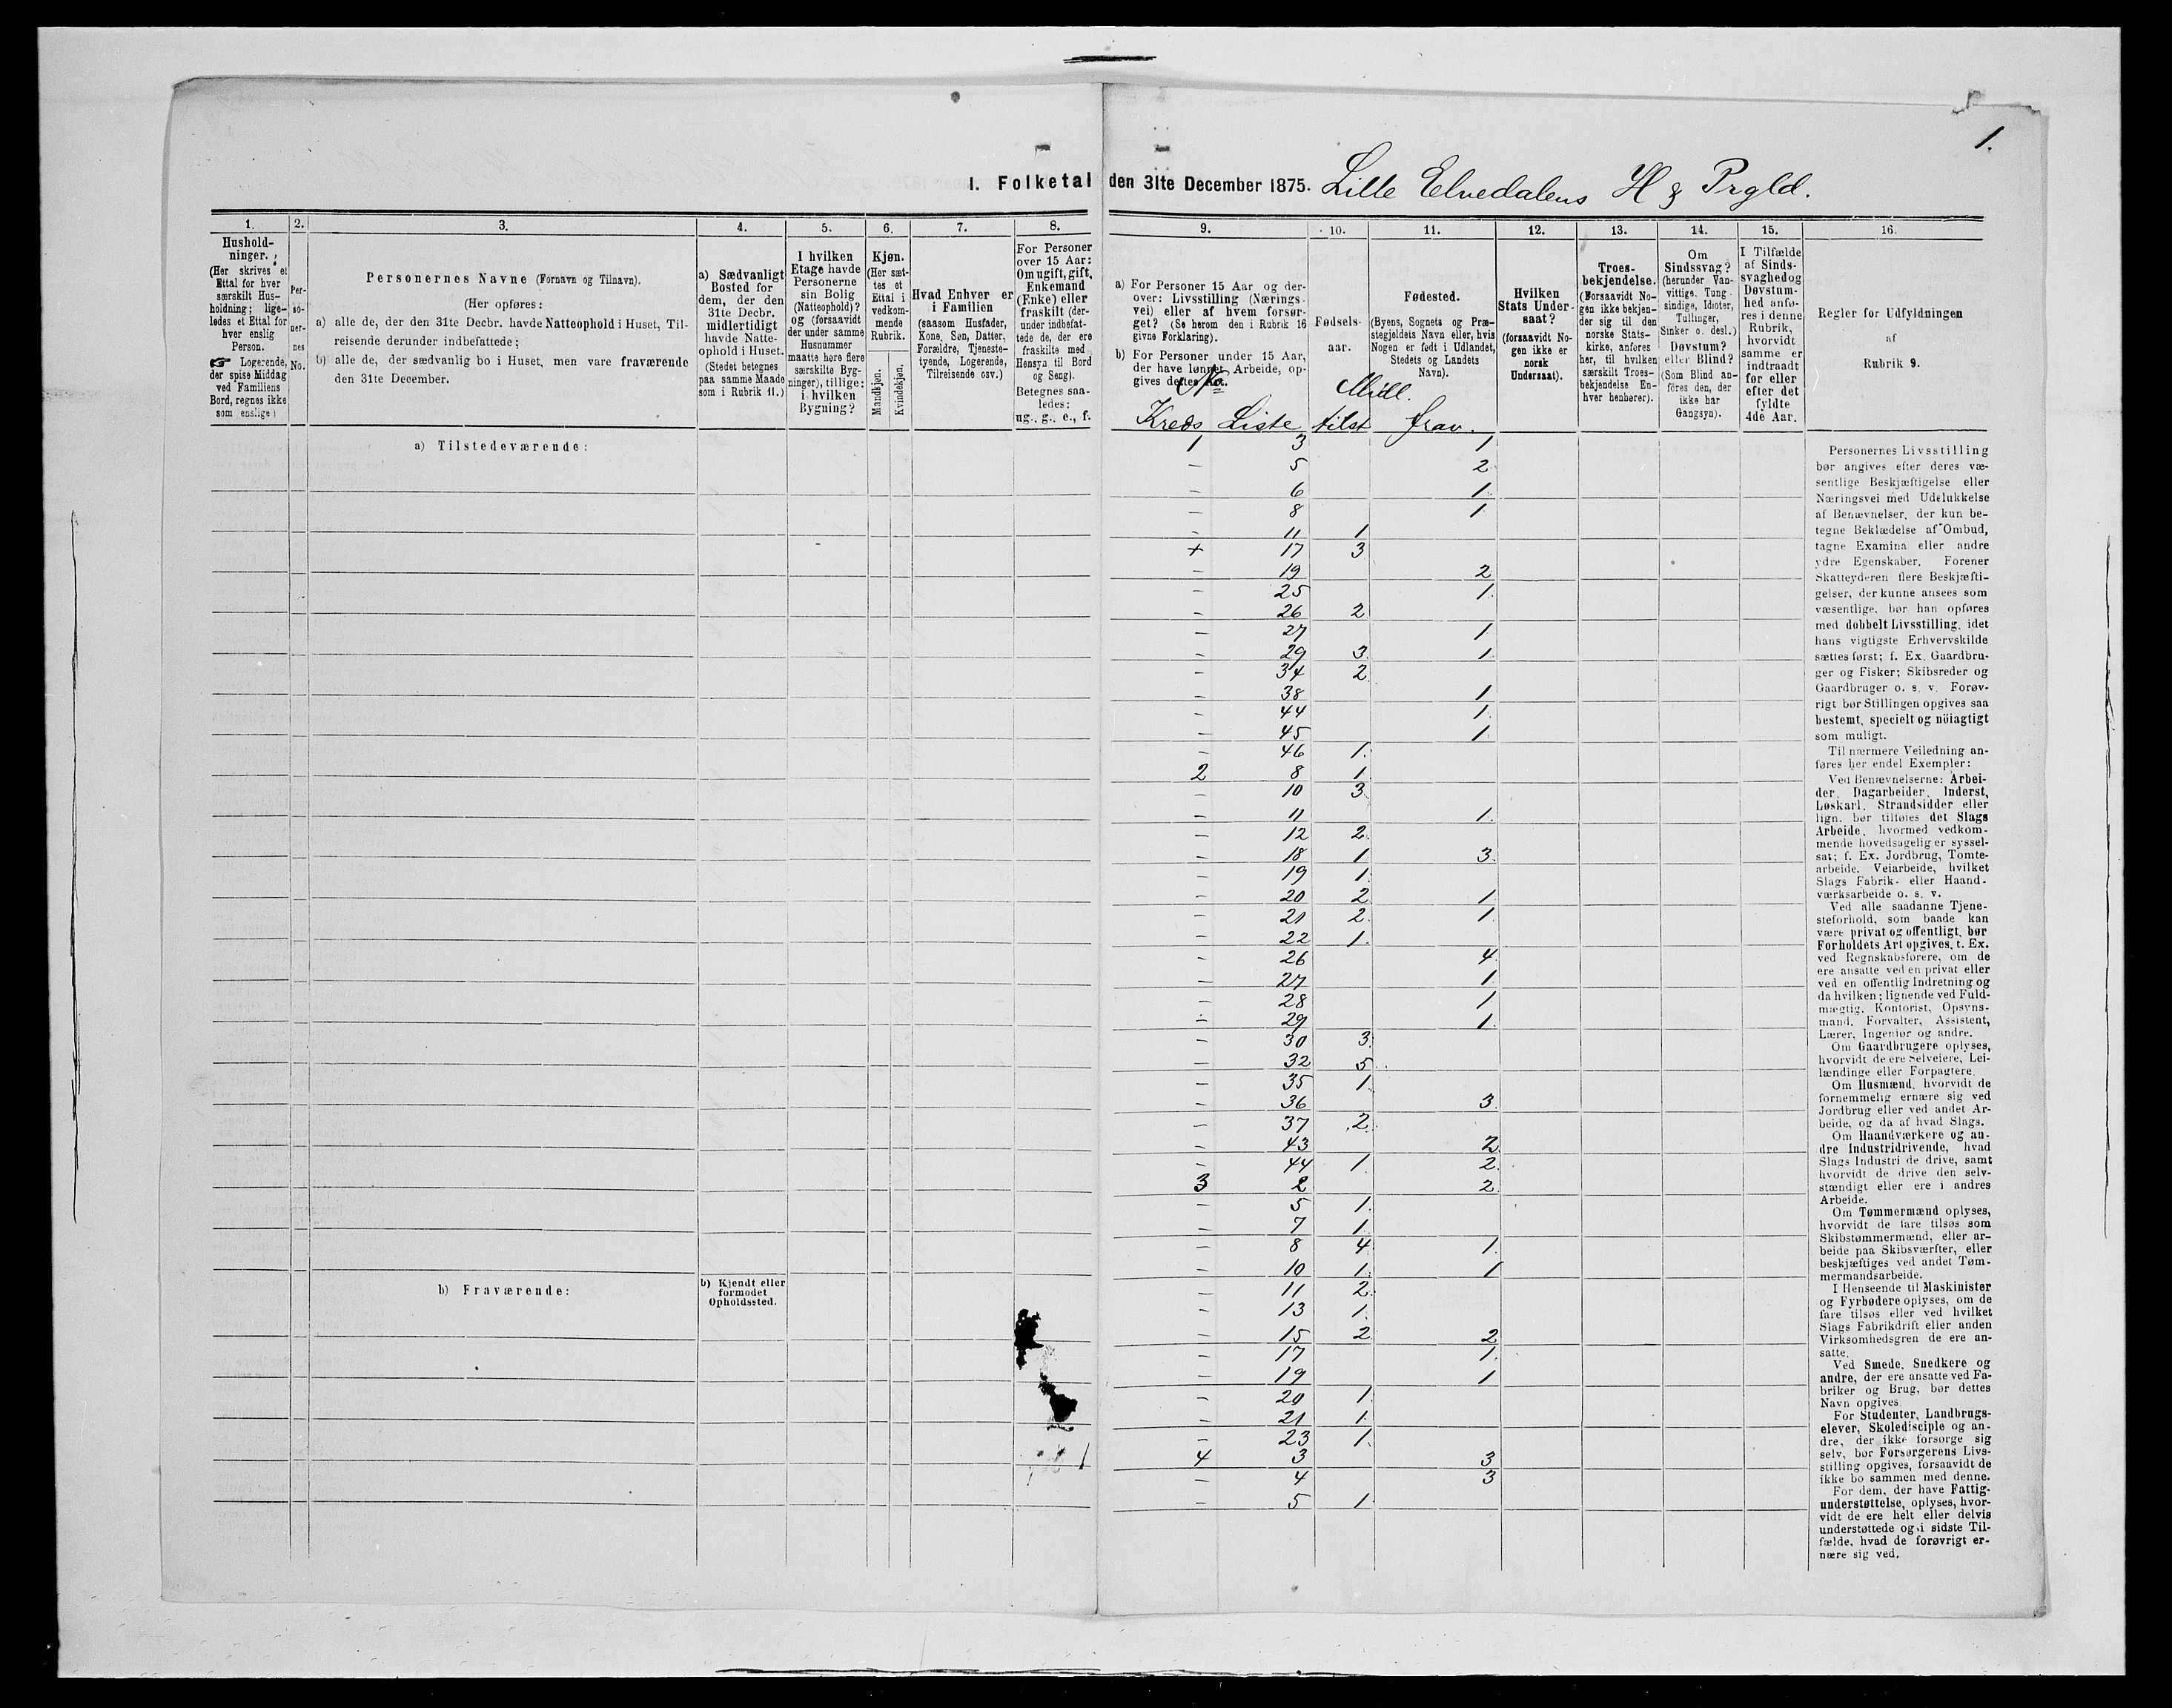 1.
I. Folketal den 31te December 1875. Lille Elvedalens H & Prgld.
1.
Hushold-
ninger.
(Her skrives et
Ettal for hver
særskilt Hus-
holdning; lige-
ledes et Ettal for
hver enslig
Person.
☞ Logerende,
der spise Middag
ved Familiens
Bord, regnes ikke
som enslige)
2.
Per-
so-
ner-
nes
No.
3.
Personernes Navne (Fornavn og Tilnavn).
(Her opføres:
a) alle de, der den 31te Decbr. havde Natteophold i Huset, Til-
reisende derunder indbefattede;
b) alle de, der sædvanlig bo i Huset, men vare fraværende
den 31te December.
4.
a) Sædvanligt
Bosted for
dem, der den
31te Decbr.
midlertidigt
havde Natte-
ophold i Huset.
(Stedet betegnes
paa samme Maade
som i Rubrik 11.)
5.
I hvilken
Etage havde
Personerne
sin Bolig
(Natteophold)?
og (forsaavidt
der under samme
Husnummer
maatte høre flere
særskilte Byg-
ninger), tillige:
i hvilken
Bygning?
6.
Kjøn.
(Her sæt-
tes et
Ettal i
vedkom-
mende
Rubrik.
Mandkjøn.
Kvindekjøn.
7.
Hvad Enhver er
i Familien
(saasom Husfader,
Kone, Søn, Datter,
Forældre, Tjeneste-
tyende, Logerende,
Tilreisende osv.)
8.
For Personer
over 15 Aar:
Om ugift, gift,
Enkemand
(Enke) eller
fraskilt (der-
under indbefat-
tede de, der ere
fraskilte med
Hensyn til Bord
og Seng).
Betegnes saa-
ledes:
ug., g., e., f.
9.
a) For Personer 15 Aar og der-
over: Livsstilling (Nærings-
vei) eller af hvem forsør-
get? (Se herom den i Rubrik 16
givne Forklaring).
b) For Personer under 15 Aar,
der have lønnet Arbeide, op-
gives dettes Art.
10.
Fødsels-
aar.
11.
Fødested.
(Byens, Sognets og Præ-
stegjeldets Navn eller, hvis
Nogen er født i Udlandet,
Stedets og Landets
Navn).
12.
Hvilken
Stats Under-
saat?
(forsaavidt No-
gen ikke er
norsk
Undersaat).
13.
Troes-
bekjendelse.
(Forsaavidt No-
gen ikke bekjen-
der sig til den
norske Stats-
kirke, anføres
her, til hvilken
særskilt Troes-
bekjendelse En-
hver henhører).
14.
Om
Sindssvag?
(herunder Van-
vittige, Tung-
sindige, Idioter,
Tullinger,
Sinker o. desl.)
Døvstum?
eller Blind?
(Som Blind an-
føres den, der
ikke har
Gangsyn).
15.
I Tilfælde
af Sinds-
svaghed og
Døvstum-
hed anfø-
res i denne
Rubrik,
hvorvidt
samme er
indtraadt
før eller
efter det
fyldte
4de Aar.
16.
Regler for Udfyldningen
af
Rubrik 9.
No. Midl.
Kreds Liste tilst frav.
a) Tilstedeværende:
1 3 1
– 5 2
– 6 1
– 8 1
– 11 1
+ 17 3
– 19 2
– 25 1
– 26 2
– 27 1
– 29 3 1
– 34 2
– 38 1
– 44 1
– 45 1
– 46 1
2 8 1
– 10 3
– 11 1
– 12 2
– 18 1 3
– 19 1
– 20 2 1
– 21 2 1
– 22 1
– 26 4
– 27 1
– 28 1
– 29 1
– 30 3
– 32 5
– 35 1
– 36 3
– 37 2
– 43 2
– 44 1 2
3 2 2
– 5 1
– 7 1
– 8 4 1
– 10 1 1
– 11 2
– 13 1
– 15 2 2
– 17 1
– 19 1
– 20 1
– 21 1
– 23 1
4 3 3
– 4 3
– 5 1
b) Fraværende:
b) Kjendt eller
formodet
Opholdssted.
Personernes Livsstilling
bør angives efter deres væ-
sentlige Beskjæftigelse eller
Næringsvei med Udelukkelse
af Benævnelser, der kun be-
tegne Beklædelse af Ombud,
tagne Examina eller andre
ydre Egenskaber. Forener
Skatteyderen flere Beskjæfti-
gelser, der kunne ansees som
væsentlige, bør han opføres
med dobbelt Livsstilling, idet
hans vigtigste Erhvervskilde
sættes først; f. Ex. Gaardbru-
ger og Fisker; Skibsreder og
Gaardbruger o. s. v. Forøv-
rigt bør Stillingen opgives saa
bestemt, specielt og nöiagtigt
som muligt.
Til nærmere Veiledning an-
føres her endel Exempler:
Ved Benævnelserne: Arbei-
der, Dagarbeider, Inderst,
Løskarl, Strandsidder eller
lign. bør tilføies det Slags
Arbeide, hvormed vedkom-
mende hovedsagelig er syssel-
sat; f. Ex. Jordbrug, Tomte-
arbeide, Veiarbeide, hvilket
Slags Fabrik- eller Haand-
værksarbeide o. s. v.
Ved alle saadanne Tjene-
steforhold, som baade kan
være privat og offentligt, bør
Forholdets Art opgives, t. Ex.
ved Regnskabsførere, om de
ere ansatte ved en privat eller
ved en offentlig Indretning og
da hvilken; lignende ved Fuld-
mægtig, Kontorist, Opsyns-
mand, Forvalter, Assistent,
Lærer, Ingeniør og andre.
Om Gaardbrugere oplyses,
hvorvidt de ere Selveiere, Lei-
lændinge eller Forpagtere.
Om Husmænd, hvorvidt de
fornemmelig ernære sig ved
Jordbrug eller ved andet Ar-
beide, og da af hvad Slags.
Om Haandværkere og an-
dre Industridrivende, hvad
Slags Industri de drive, samt
hvorvidt de drive den selv-
stændigt eller ere i andres
Arbeide.
Om Tømmermænd oplyses,
hvorvidt de fare tilsøs som
Skibstømmermænd, eller ar-
beide paa Skibsværfter, eller
beskjæftiges ved andet Tøm-
mermandsarbeide.
I Henseende til Maskinister
og Fyrbødere oplyses, om de
fare tilsøs eller ved hvilket
Slags Fabrikdrift eller anden
Virksomhedsgren de ere an-
satte.
Ved Smede, Snedkere og
andre, der ere ansatte ved Fa-
briker og Brug, bør dettes
Navn opgives.
For Studenter, Landbrugs-
elever, Skoledisciple og an-
dre, der ikke forsørge sig
selv, bør Forsørgerens Livs-
stilling opgives, forsaavidt de
ikke bo sammen med denne.
For dem, der have Fattig-
understøttelse, oplyses, hvor-
vidt de ere helt eller delvis
understøttede og i sidste Til-
fælde, hvad de forøvrigt er-
nære sig ved.